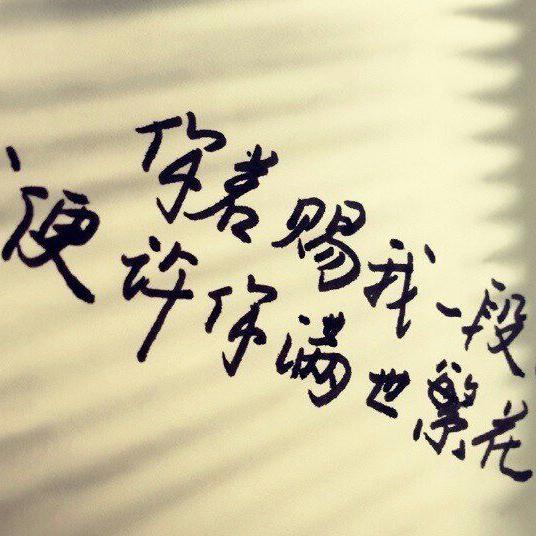 你若赐我一段
便许你满世繁花